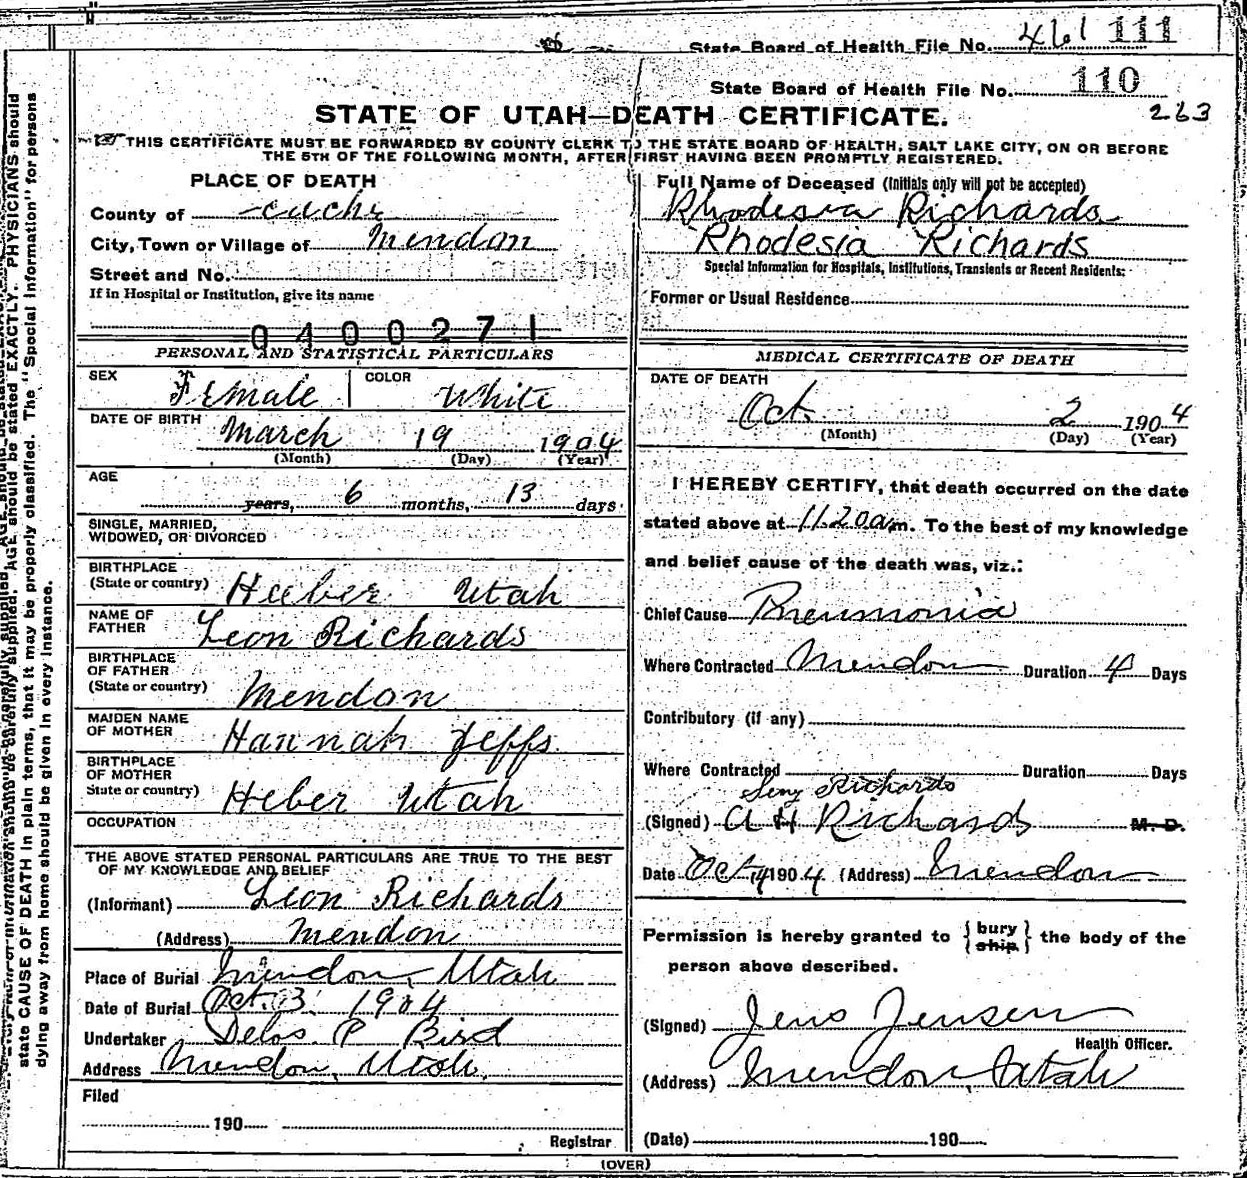 State Board of Health File No. 461 111
State Board of Health File No. 110
263
STATE OF UTAH—DEATH CERTIFICATE.
THIS CERTIFICATE MUST BE FORWARDED BY COUNTY CLERK TO THE STATE BOARD OF HEALTH, SALT LAKE CITY, ON OR BEFORE
THE 5TH OF THE FOLLOWING MONTH, AFTER FIRST HAVING BEEN PROMPTLY REGISTERED.
PLACE OF DEATH
County of Cache
City, Town or Village of Mendon
Street and No.
If in Hospital or Institution, give its name
0400271
Full Name of Deceased (Initials only will not be accepted)
Rhodesia Richards
Rhodesia Richards
Special Information for Hospitals, Institutions, Transients or Recent Residents:
Former or Usual Residence
PERSONAL AND STATISTICAL PARTICULARS
SEX Female COLOR White
DATE OF BIRTH March 19 1904
(Month) (Day) (Year)
AGE
years, 6 months, 13 days
SINGLE, MARRIED,
WIDOWED, OR DIVORCED
BIRTHPLACE
(State or country) Heeber Utah
NAME OF
FATHER Leon Richards
BIRTHPLACE
OF FATHER
(State or country) Mendon
MAIDEN NAME
OF MOTHER Hannah Jeffs
BIRTHPLACE
OF MOTHER
State or country) Heber Utah
OCCUPATION
THE ABOVE STATED PERSONAL PARTICULARS ARE TRUE TO THE BEST
OF MY KNOWLEDGE AND BELIEF
(Informant) Leon Richards
(Address) Mendon
Place of Burial Mendon, Utah
Date of Burial Oct. 3. 1904
Undertaker Delos P Bird
Address Mendon, Utah.
Filed
190
Registrar
MEDICAL CERTIFICATE OF DEATH
DATE OF DEATH
Oct 2 1904
(Month) (Day) (Year)
I HEREBY CERTIFY, that death occurred on the date
stated above at 11.20 a.m. To the best of my knowledge
and belief cause of the death was, viz.:
Chief Cause Pneumonia
Where Contracted Mendon Duration 4 Days
Contributory (if any)
Where Contracted Duration Days
Richards
(Signed) A H Richards M. D.
Date Oct 4 1904 (Address) Mendon
Permission is hereby granted to {bury ship.} the body of the
person above described.
(Signed) Jens Jensen
Health Officer.
(Address) Mendon, Utah
(Date) 190
(OVER)
state CAUSE OF DEATH in plain terms, that it may be properly classified. The "Special Information" for persons
dying away from home should be given in every instance.
AGE should be stated EXACTLY. PHYSICIANS should